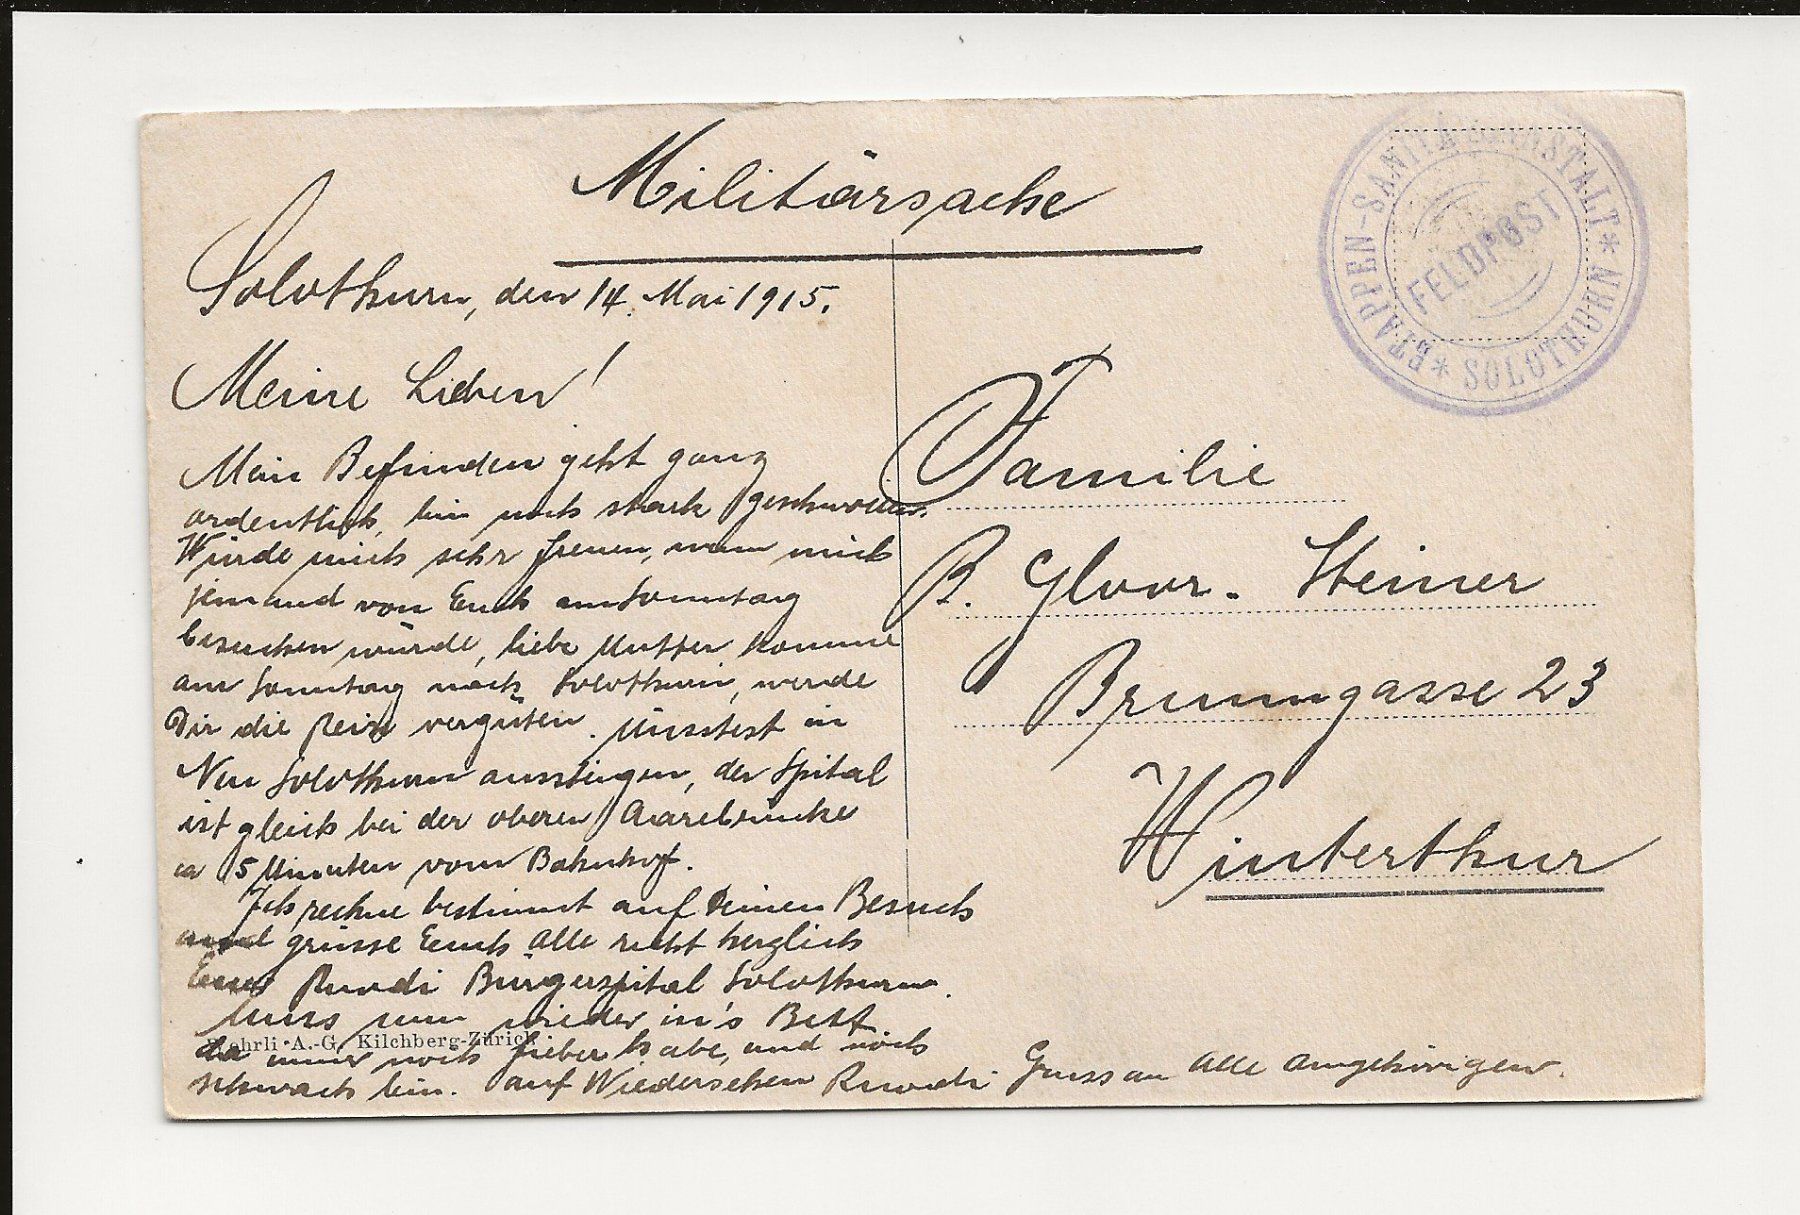 Militärsache
Solothurn, den 14. Mai 1915.
Meine Lieben!
Mein Befinden geht ganz
ordentlich, bin noch stark geschwollen.
Würde mich sehr freuen, wenn mich
jemand von Euch am Sonntag
besuchen würde, liebe Mutter komme
am Sonntag nach Solothurn, werde
Dir die Reise vergüten. Müsstest in
Neu Solothurn aussteigen, der Spital
ist gleich bei der oberen Aarebrücke
ca 5 Minuten vom Bahnhof.
Ich rechne bestimmt auf Deinen Besuch
und grüsse Euch alle recht herzlich
Euer Ruedi Bürgerspital Solothurn.
Muss nun wieder in's Bett
da immer noch Fieber habe, und noch
schwach bin. Auf Wiedersehen Ruedi Gruss an Alle Angehörigen.
Wehrli A.-G. Kilchberg-Zürich
ETAPPEN-SANITÄTSANSTALT * SOLOTHURN *
FELDPOST
Familie
B. Gloor-Steiner
Brunngasse 23
Winterthur